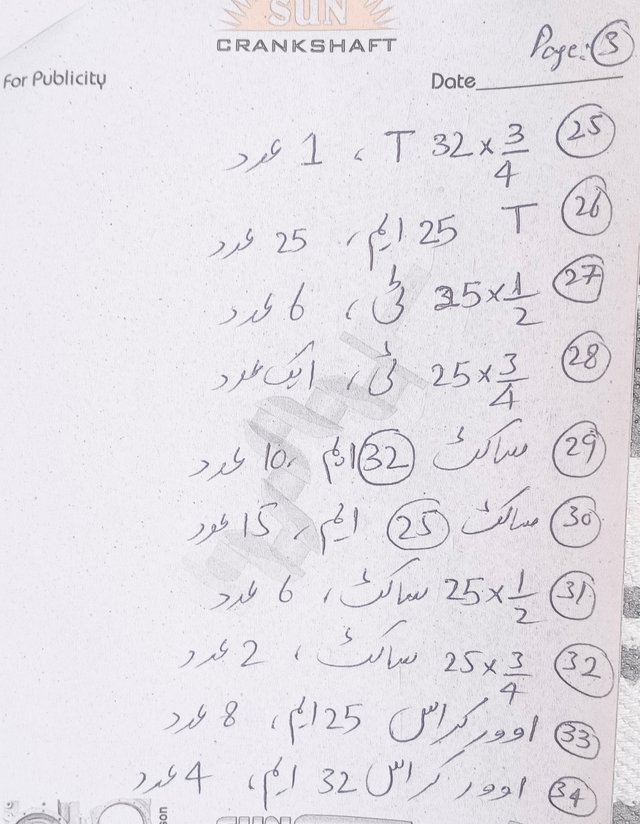 SUN
CRANKSHAFT
Page: 3
For Publicity
Date
25 T 32×3/4 ، 1 عدد
26 T 25 ایم، 25 عدد
27 25×1/2 ٹی، 6 عدد
28 25×3/4 ٹی، ایک عدد
29 ساکٹ 32 ایم ، 10 عدد
30 ساکٹ 25 ایم، 15 عدد
31 25×1/2 ساکٹ، 6 عدد
32 25×3/4 ساکٹ، 2 عدد
33 اوور کراس 25 ایم، 8 عدد
34 اوور کراس 32 ایم، 4 عدد